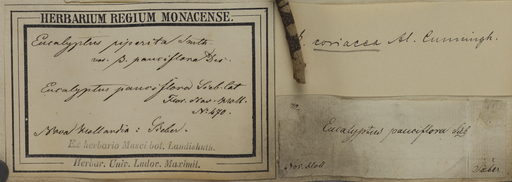 HERBARIUM REGIUM MONACENSE.
Eucalyptus piperita Smith
var. β. pauciflora DC.
Eucalyptus pauciflora Sieb. lat
Flor. Nov. Holl.
No. 470.
Nova Hollandia: Sieber.
Ex herbario Musei bot. Landishuth.
Herbar. Univ. Ludov. Maximil.
E. coriacea Al. Cunningh.
Eucalyptus pauciflora Sieb
Nov. Holl.
Sieber